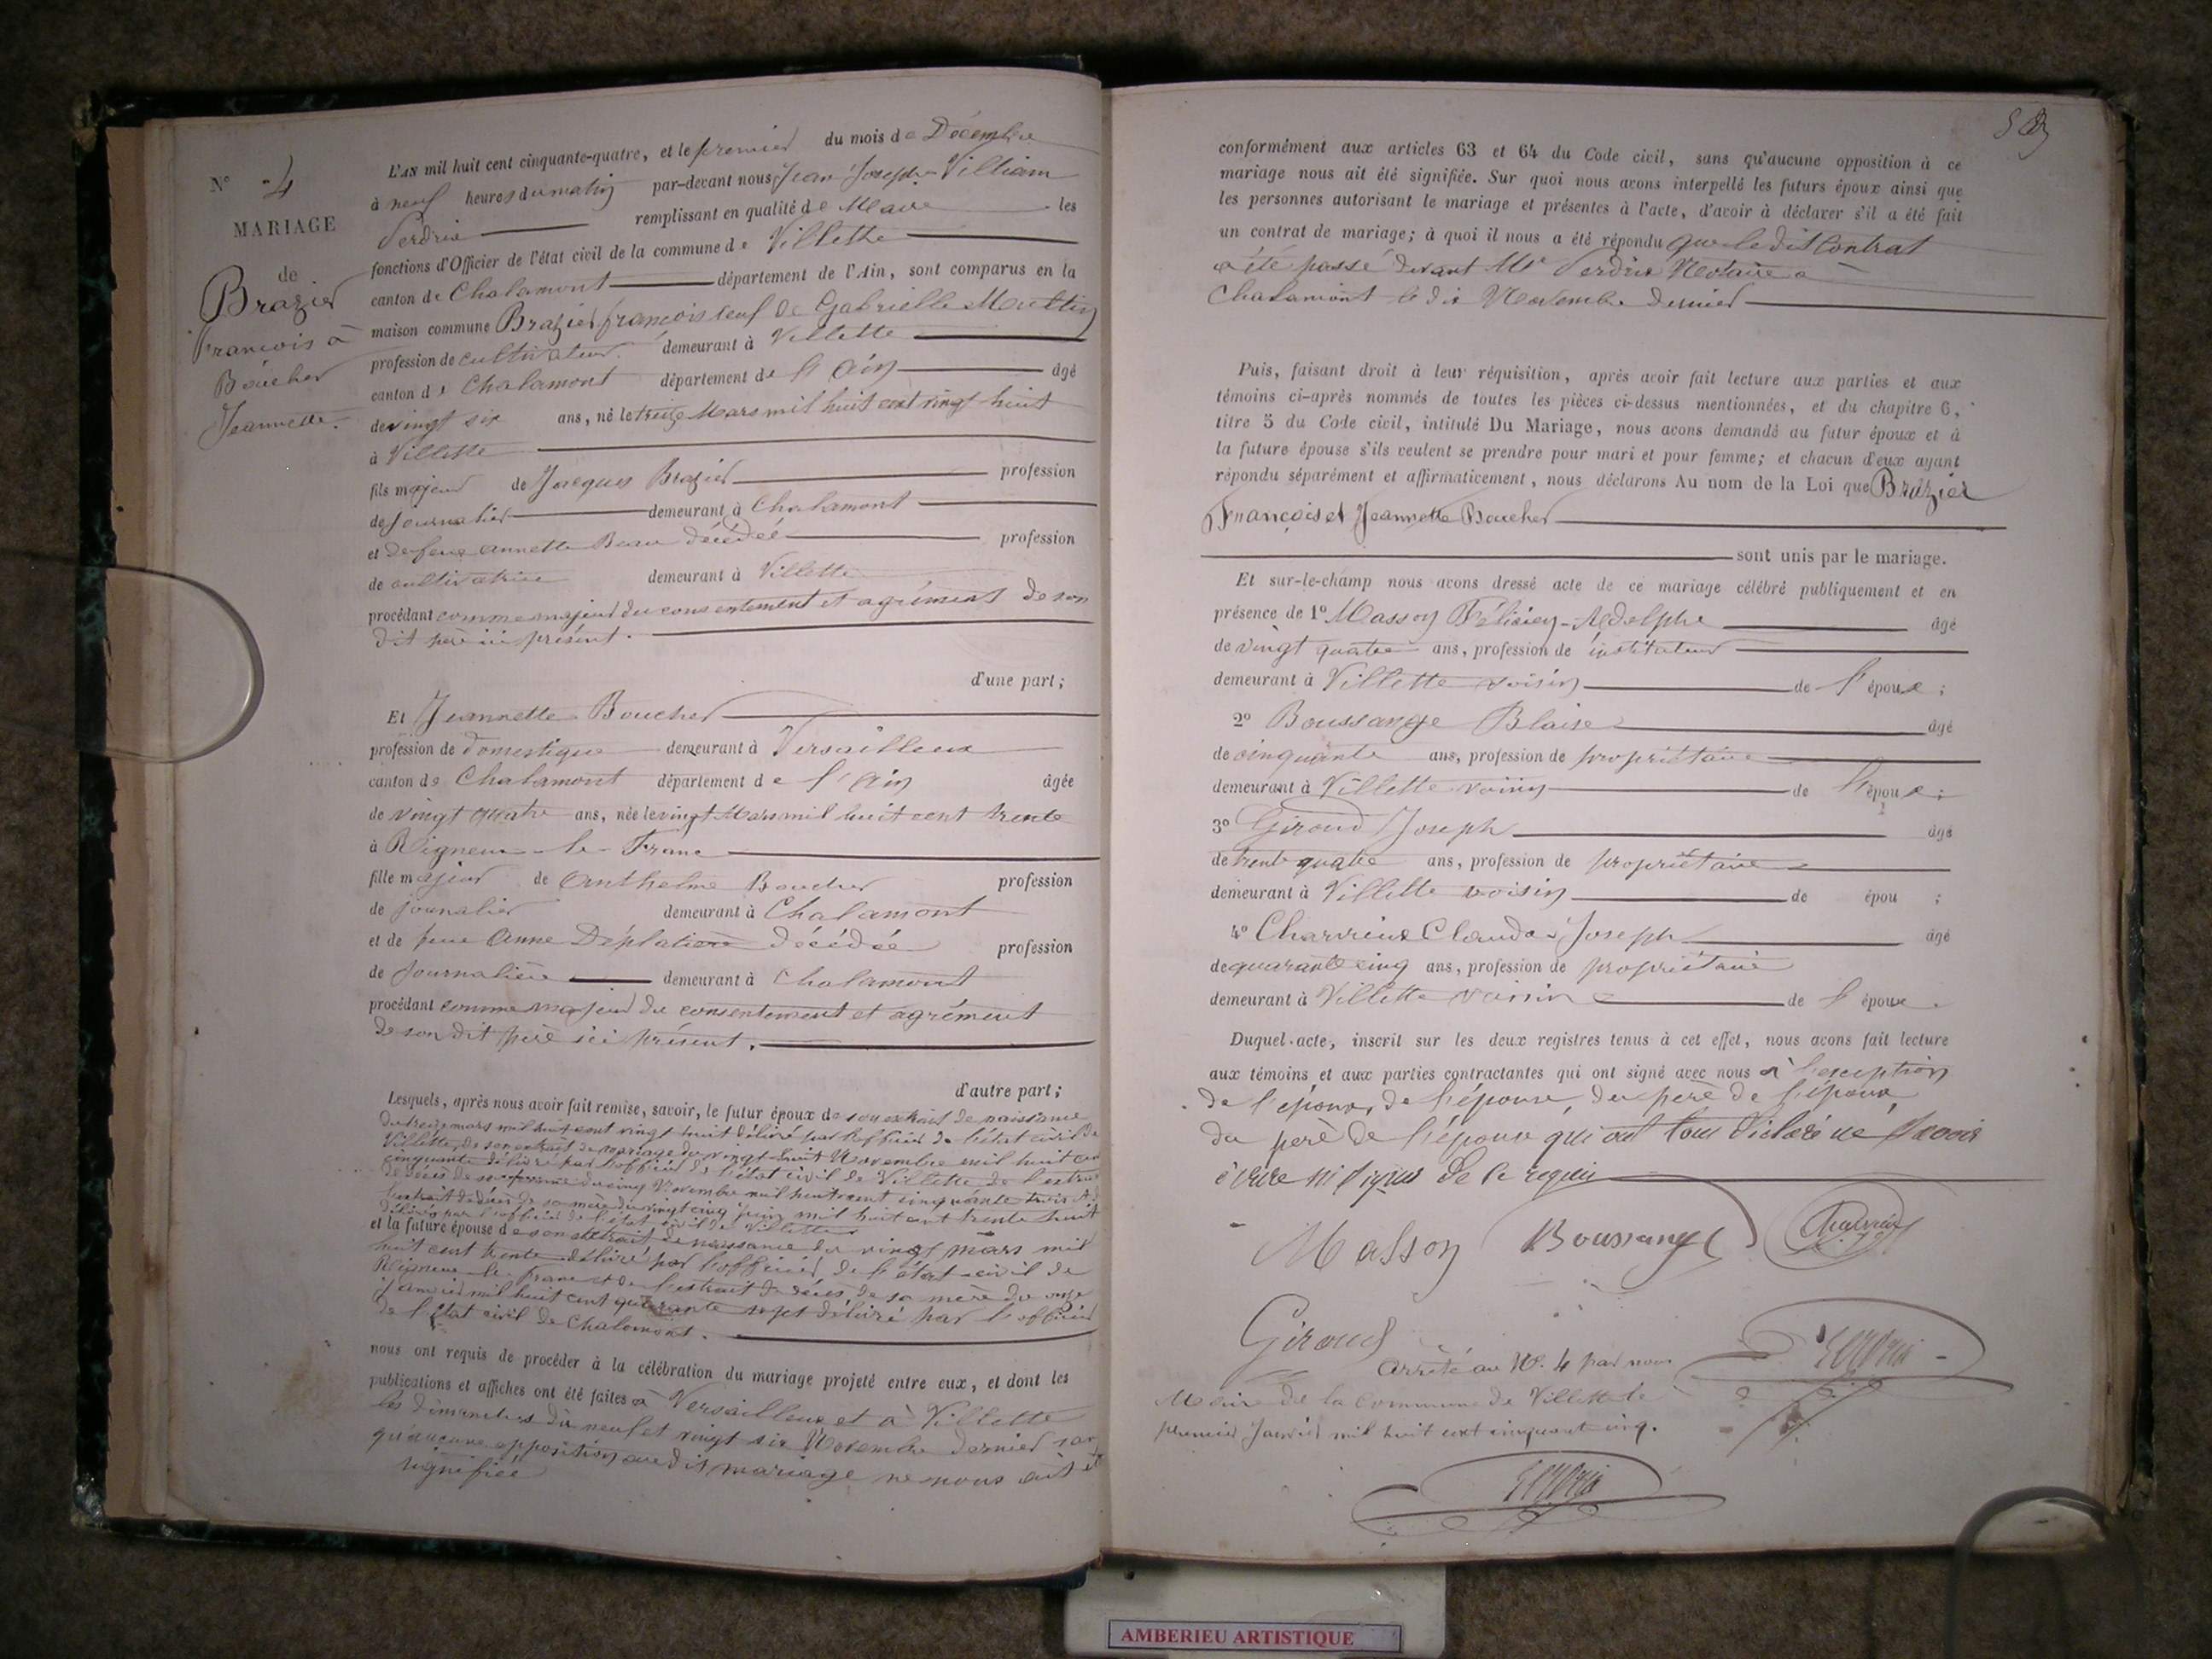 N° 4
MARIAGE
de
Brazier
François à
Boucher
Jeannette.
L'AN mil huit cent cinquante-quatre, et le premier du mois de Décembre
à neuf heures du matin par-devant nous Jean Joseph Villiam
Perdrix remplissant en qualité de Maire les
fonctions d'Officier de l'état civil de la commune de Villette
canton de Chalamont département de l'Ain, sont comparus en la
maison commune Brazier françois veuf de Gabrielle
profession de cultivateur. demeurant à Villette
canton de Chalamont département de l'Ain âgé
de vingt six ans, né le treize Mars mil huit cent vingt huit
à Villette
fils majeur de Jacques Brazier profession
de Journalier demeurant à Chalamont
et de feue annette Beau décédée profession
de cultivatrice demeurant à Villette
procédant comme majeur du consentement et agrément de son
dit père ici présent.
d'une part;
Et Jeannette Boucher
profession de domestique demeurant à Versailleux
canton de Chalamont département de l'Ain âgée
de vingt quatre ans, née le vingt Mars mil huit cent trente
à Rigneux le Franc
fille majeur de Anthelme Boucher profession
de journalier demeurant à Chalamont
et de feue Anne Déplatière décédée profession
de Journalière demeurant à Chalamont
procédant comme majeur du consentement et agrément
de son dit père ici présent.
d'autre part;
Lesquels, après nous avoir fait remise, savoir, le futur époux de son extrait de naissance
du treize mars mil huit cent vingt huit délivré par l'officier de l'état civil de
Villette, de son extrait de mariage du vingt huit Novembre mil huit cent
cinquante délivré par l'officier de l'état civil de Villette de l'extrait
de décès de sa femme du cinq Novembre mil huit cent cinquante trois
l'extrait de décès de sa mère du vingt cinq juin mil huit cent trente huit
délivrés par l'officier de l'état civil de Villette
et la future épouse de son extrait de naissance du vingt mars mil
huit cent trente délivré par l'officier de l'état civil de
Rigneux le Franc et de l'extrait de décès de sa mère du onze
janvier mil huit cent quarante sept délivré par l'officier
de l'état civil de Chalamont.
nous ont requis de procéder à la célébration du mariage projeté entre eux, et dont les
publications et affiches ont été faites à Versailleux et à Villette
les dimanches dix neuf et vingt six Novembre dernier
qu'aucune opposition audit mariage ne nous ait été
signifiée
conformément aux articles 63 et 64 du Code civil, sans qu'aucune opposition à ce
mariage nous ait été signifiée. Sur quoi nous avons interpellé les futurs époux ainsi que
les personnes autorisant le mariage et présentes à l'acte, d'avoir à déclarer s'il a été fait
un contrat de mariage; à quoi il nous a été répondu que le dit Contrat
a été passé devant Me Perdrix Notaire à
Chalamont le dix Novembre dernier
Puis, faisant droit à leur réquisition, après avoir fait lecture aux parties et aux
témoins ci-après nommés de toutes les pièces ci-dessus mentionnées, et du chapitre 6,
titre 5 du Code civil, intitulé Du Mariage, nous avons demandé au futur époux et à
la future épouse s'ils veulent se prendre pour mari et pour femme; et chacun d'eux ayant
répondu séparément et affirmativement, nous déclarons Au nom de la Loi que Brazier
François et Jeannette Boucher
sont unis par le mariage.
Et sur-le-champ nous avons dressé acte de ce mariage célébré publiquement et en
présence de 1° Masson Félicien-Adelphe âgé
de vingt quatre ans, profession de instituteur
demeurant à Villette voisin de l'époux;
2° Boussange Blaise âgé
de cinquante ans, profession de propriétaire
demeurant à Villette voisin de l'époux;
3° Giroud Joseph âgé
de trente quatre ans, profession de propriétaire
demeurant à Villette voisin de épou ;
4° Charvieux Claude Joseph âgé
de quarante cinq ans, profession de propriétaire
demeurant à Villette voisin de l'époux.
Duquel acte, inscrit sur les deux registres tenus à cet effet, nous avons fait lecture
aux témoins et aux parties contractantes qui ont signé avec nous à l'exception
de l'époux, de l'épouse, du père de l'époux,
du père de l'épouse qui ont tous déclaré ne savoir
écrire ni signer de ce requis
Masson Boussange Charvieux
Giroud
Arrêté au N°. 4 par nous
Maire de la Commune de Villette le
premier Janvier mil huit cent cinquante cinq.
Perdrix
AMBERIEU ARTISTIQUE